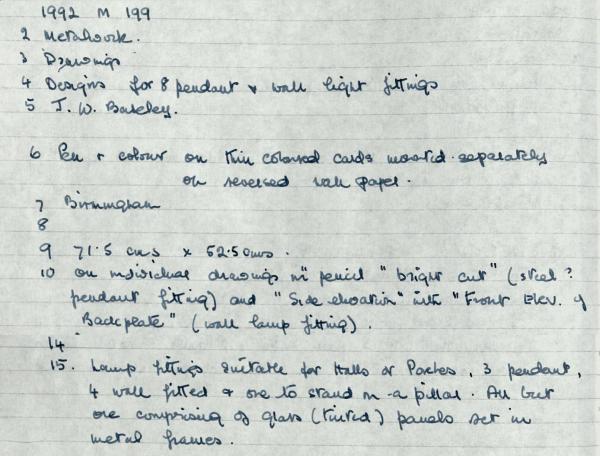 1992 M 199
2 Metalwork.
3 Drawings
4 Designs for 8 pendant & wall light fittings
5 J. W. Barkley.
6 Pen & colour on thin coloured cards mounted separately
on reversed wall paper.
7 Birmingham
8
9 71.5 cms x 52.5 cms.
10 on individual drawings in pencil "bright cut" (steel?
pendant fitting) and "Side elevation" with "Front Elev. of
Backplate" (wall lamp fitting).
14
15. Lamp fittings suitable for Halls or Porches, 3 pendant,
4 wall fitted & one to stand on a pillar. All but
one comprising of glass (tinted) panels set in
metal frames.